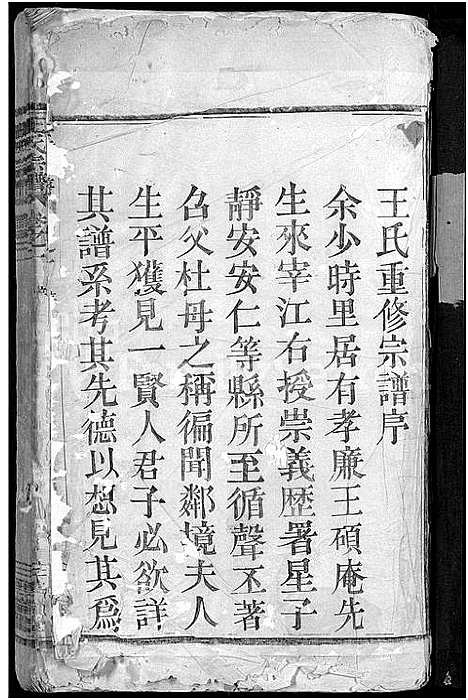 王氏重修宗譜序
余少時里居有孝廉王碩庵先
生來宰江右授崇義歴署星子
靜安安仁等縣所至循聲丕著
召父杜母之稱徧聞鄰境夫人
生平獲見一賢人君子必欲詳
其譜系考其先德以想見其爲